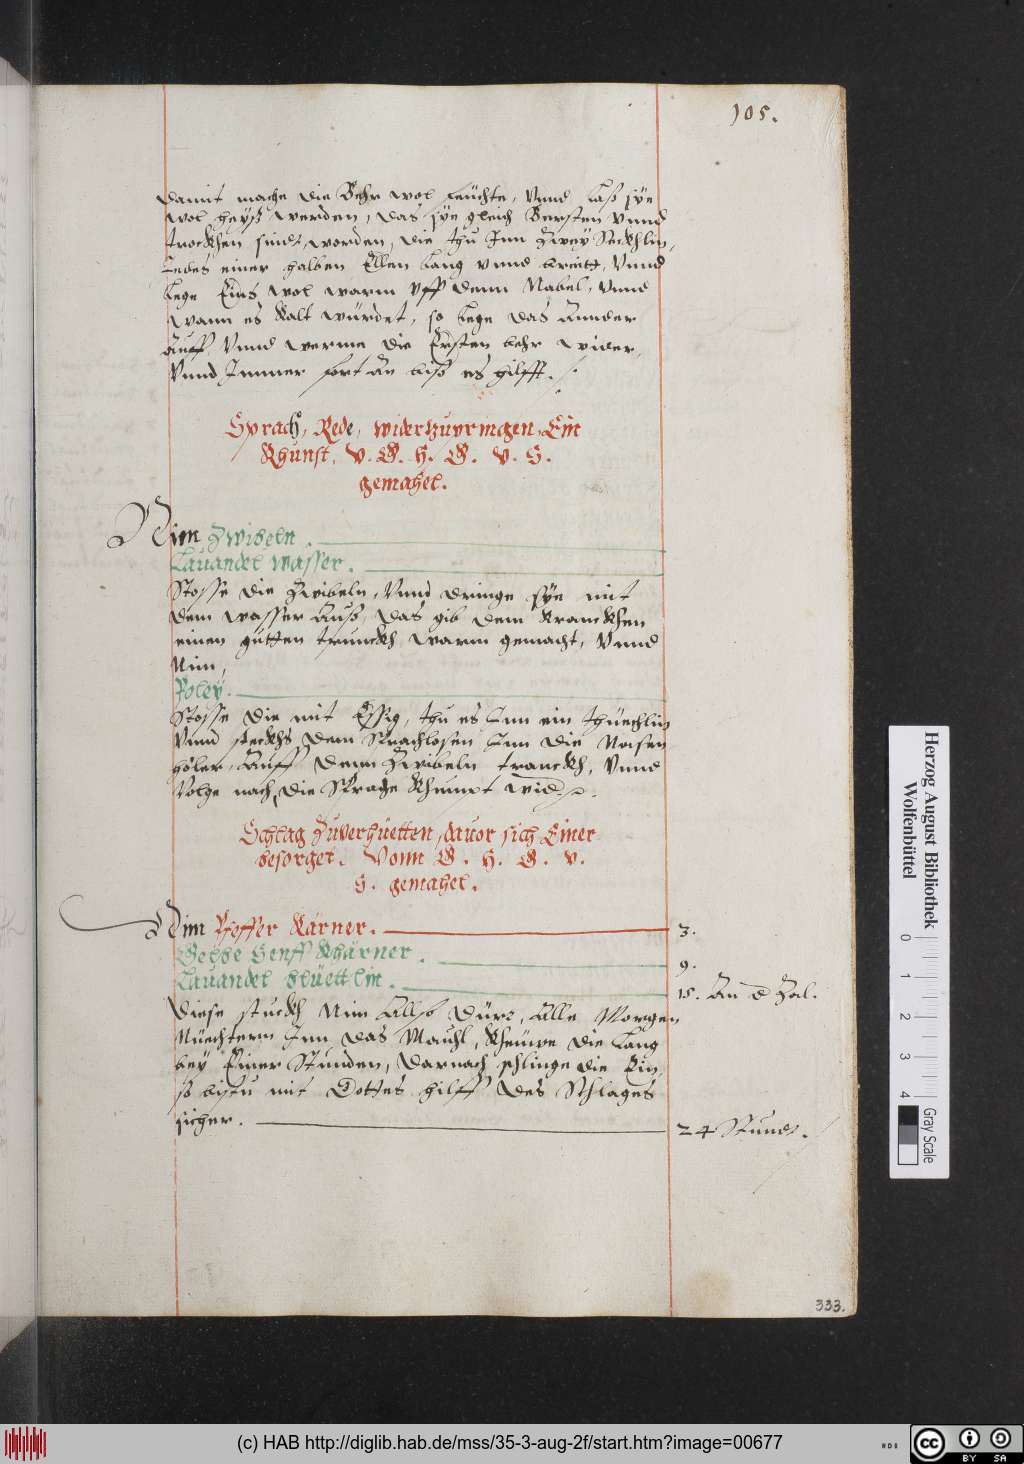 105.
damit mache die Behr wol feüchte, Vnnd Laß sÿe
wol heyß werden, das sÿe gleich Bersten Vnnd
trockhen sindt, worden, die thu Inn Zweÿ Seckhlin,
Jedes einer halben Ellen Lang vnnd breitt, Vnnd
Lege Eins wol warm vff denn Nabel, Vnnd
Wann es Kalt würdet, so Lege das Annder
Auff Vnnd werme die Ersten behr wider,
Vnnd Immer fort An biß es hilfft.
Sprach, Rede, widerzuvringen, Ein
Khunst, V. G. H. G. V. S.
gemahel.
Nim Zwibeln.
Lauandel wasser.
Stosse die Zwibeln, Vnnd dringe sÿe mit
dem wasser Auß, das gib dem Kranckhen
einen gutten trunckh warm gemacht, Vnnd
Nim,
Poleÿ.
Stosse die mit Essig, thu es Inn ein thüechlin
Vnnd steckhs dem Sprachlosen Inn die Nasen
höler, Auff denn Zwibeln tranckh, Vnnd
Volge nach, die Sprache Khumpt wid.
Schlag Zuverhüetten, dauor sich Einer
besorget. Vonn G. H. G. V.
S. gemahel.
Nim Pfeffer Kärner. 3.
Gelbe Senff Khärner. 9.
Lauandel blüettlin. 15. An d Zal.
Diese stuckh Nim Allso dürr, Alle Morgen
Nüechtern Inn das Mauhl, Kheüwe die Lang
beÿ Einer Stunden, darnach schlinge die Ein,
so bistu mit Gottes hilff des Schlages
sicher. 24 Stundt.
333.
Herzog August Bibliothek
Wolfenbüttel
0 1 2 3 4
Gray Scale
(c) HAB http://diglib.hab.de/mss/35-3-aug-2f/start.htm?image=00677
cc BY SA